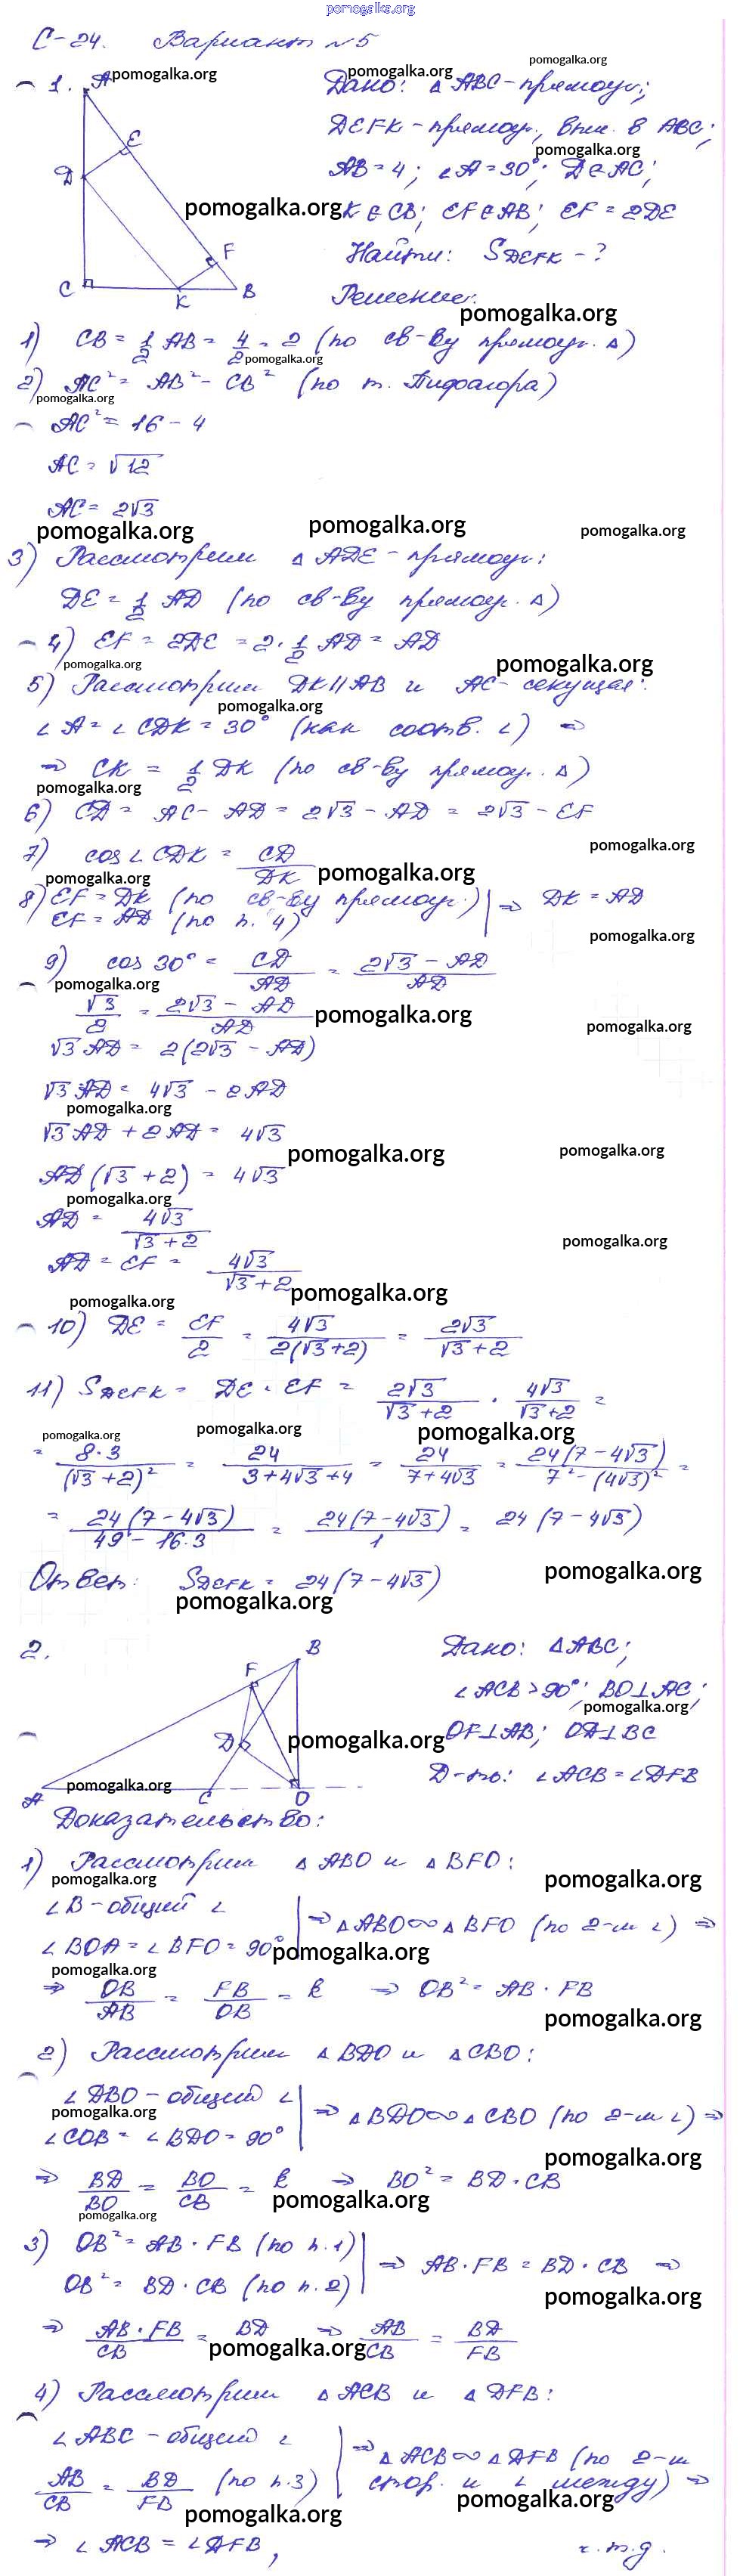 pomogalka.org
С-24. Вариант №5
1. Дано: △ABC-прямоуг.;
DEFK-прямоуг., впис. в ABC;
AB=4; ∠A=30°; D∈AC;
K∈CB; EF∈AB; EF=2DE
Найти: S DEFK-?
Решение:
A
E
D
F
C K B
1) CB = 1/2 AB = 4/2 = 2 (по св-ву прямоуг. △)
2) AC² = AB² - CB² (по т. Пифагора)
AC² = 16 - 4
AC = √12
AC = 2√3
3) Рассмотрим △ADE-прямоуг.:
DE = 1/2 AD (по св-ву прямоуг. △)
4) EF = 2DE = 2·1/2 AD = AD
5) Рассмотрим DK||AB и AC-секущая:
∠A = ∠CDK = 30° (как соотв. ∠) ⇒
⇒ CK = 1/2 DK (по св-ву прямоуг. △)
6) CD = AC - AD = 2√3 - AD = 2√3 - EF
7) cos∠CDK = CD/DK
8) EF = DK (по св-ву прямоуг.) | ⇒ DK = AD
EF = AD (по п. 4)
9) cos 30° = CD/AD = (2√3 - AD)/AD
√3/2 = (2√3 - AD)/AD
√3 AD = 2(2√3 - AD)
√3 AD = 4√3 - 2AD
√3 AD + 2AD = 4√3
AD(√3 + 2) = 4√3
AD = 4√3/(√3+2)
AD = EF = 4√3/(√3+2)
10) DE = EF/2 = 4√3/(2(√3+2)) = 2√3/(√3+2)
11) S DEFK = DE · EF = 2√3/(√3+2) · 4√3/(√3+2) =
= 8·3/(√3+2)² = 24/(3+4√3+4) = 24/(7+4√3) = 24(7-4√3)/(7²-(4√3)²) =
= 24(7-4√3)/(49-16·3) = 24(7-4√3)/1 = 24(7-4√3)
Ответ: S DEFK = 24(7-4√3)
2. Дано: △ABC;
∠ACB>90°; BO⊥AC;
OF⊥AB; OD⊥BC
Д-ть: ∠ACB=∠DFB
B
F
D
A C O
Доказательство:
1) Рассмотрим △ABO и △BFO:
∠B-общий ∠ | ⇒ △ABO∾△BFO (по 2-м ∠) ⇒
∠BOA = ∠BFO = 90°
⇒ OB/AB = FB/OB = k ⇒ OB² = AB · FB
2) Рассмотрим △BDO и △CBO:
∠DBO-общий ∠ | ⇒ △BDO∾△CBO (по 2-м ∠) ⇒
∠COB = ∠BDO = 90°
⇒ BD/BO = BO/CB = k ⇒ BO² = BD · CB
3) OB² = AB · FB (по п. 1) | ⇒ AB · FB = BD · CB ⇒
OB² = BD · CB (по п. 2)
⇒ AB · FB/CB = BD ⇒ AB/CB = BD/FB
4) Рассмотрим △ACB и △DFB:
∠ABC-общий ∠ | ⇒ △ACB∾△DFB (по 2-м
AB/CB = BD/FB (по п.3) стор. и ∠ между) ⇒
⇒ ∠ACB = ∠DFB,
ч.т.д.